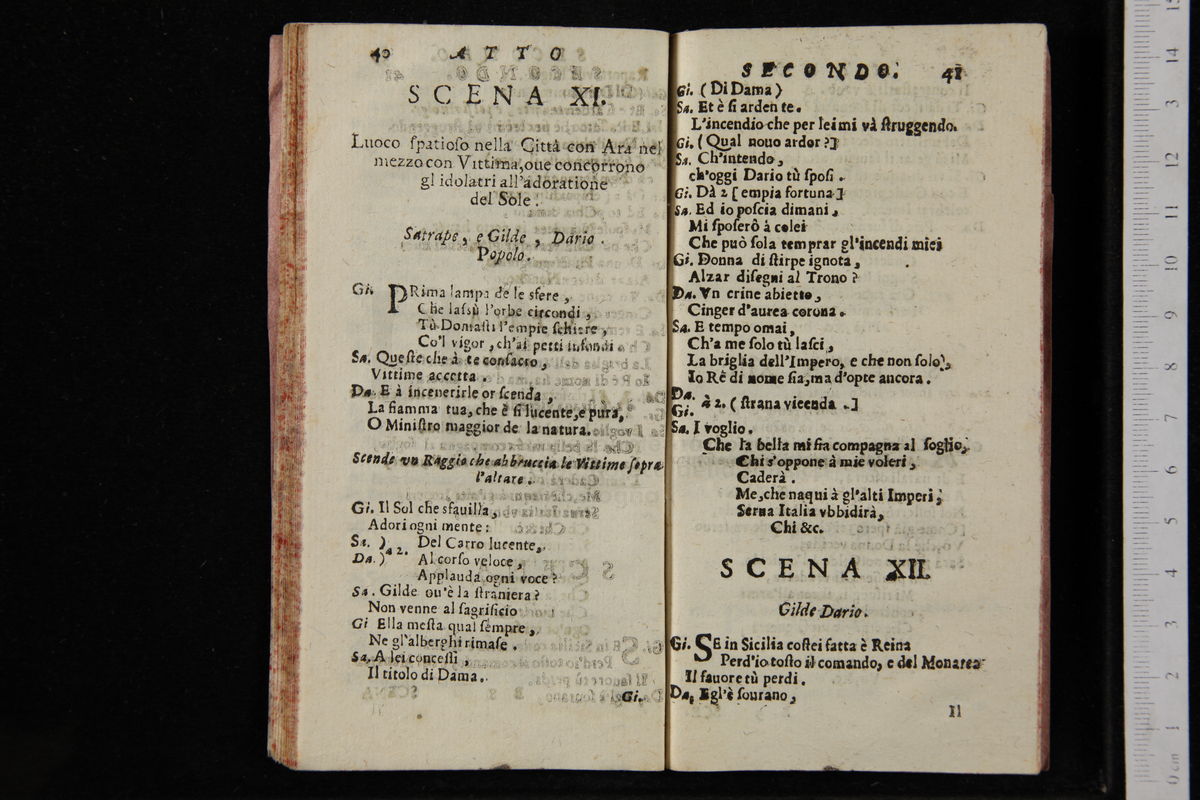 40 ATTO
SCENA XI.
Luoco spatioso nella Città con Ara nel
mezzo con Vittima, oue concorrono
gl idolatri all'adoratione
del Sole.
Satrape, e Gilde, Dario.
Popolo.
Gi. PRima lampa de le sfere,
Che lassù l'orbe circondi,
Tù Domasti l'empie schiere,
Co'l vigor, ch'ai petti infondi.
Sa. Queste che à te consacro,
Vittime accetta.
Da. E à incenerirle or scenda,
La fiamma tua, che è sì lucente, e pura,
O Ministro maggior de la natura.
Scende vn Raggio che abbruccia le Vittime sopra
l'altare.
Gi. Il Sol che sfauilla,
Adori ogni mente:
Sa. ) a 2. Del Carro lucente,
Da. ) Al corso veloce,
Applauda ogni voce?
Sa. Gilde ou'è la straniera?
Non venne al sagrificio
Gi Ella mesta qual sempre,
Ne gl'alberghi rimase.
Sa. A lei concessi,
Il titolo di Dama.
Gi.
SECONDO. 41
Gi. (Di Dama)
Sa. Et è sì ardente.
L'incendio che per lei mi và struggendo.
Gi. (Qual nouo ardor?]
Sa. Ch'intendo,
ch'oggi Dario tù sposi.
Gi. Dà 2 [empia fortuna]
Sa. Ed io poscia dimani,
Mi sposerò à colei
Che può sola temprar gl'incendi miei
Gi. Donna di stirpe ignota,
Alzar disegni al Trono?
Da. Vn crine abietto,
Cinger d'aurea corona.
Sa. E tempo omai,
Ch'a me solo tù lasci,
La briglia dell'Impero, e che non solo,
Io Rè di nome sia, ma d'opte ancora.
Da.
Gi. à 2. (strana vicenda.]
Sa. I voglio.
Che la bella mi sia compagna al soglio,
Chi s'oppone à mie voleri,
Caderà.
Me, che naqui à gl'alti Imperi,
Serua Italia vbbidirà,
Chi &c.
SCENA XII.
Gilde Dario.
Gi. SE in Sicilia costei fatta è Reina
Perd'io tosto il comando, e del Monarca
Il fauore tù perdi.
Da. Egl'è sourano,
Il